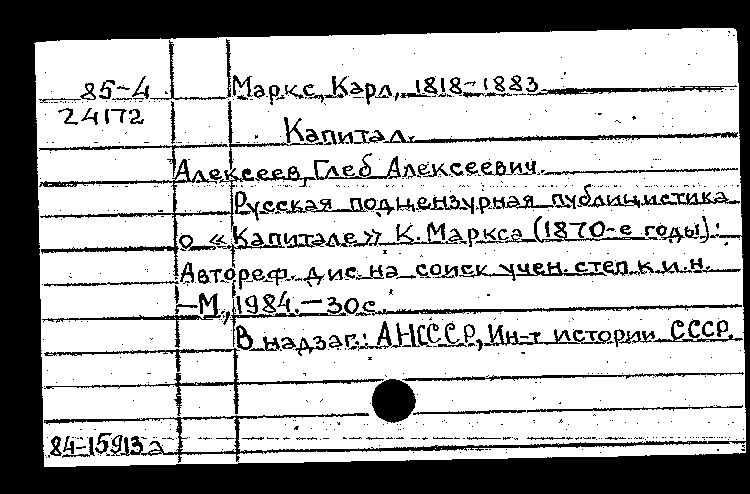 85-4 Маркс, Карл, 1818-1883
24172
Капитал.
Алексеев, Глеб Алексеевич.
Русская подцензурная публицистика
о «Капитале» К. Маркса (1870-е годы):
Автореф. дис. на соиск учен. степ к.и.н.
—М., 1984.—30с.
В надзаг.: АНСССР, Ин-т истории СССР.
84-15913а